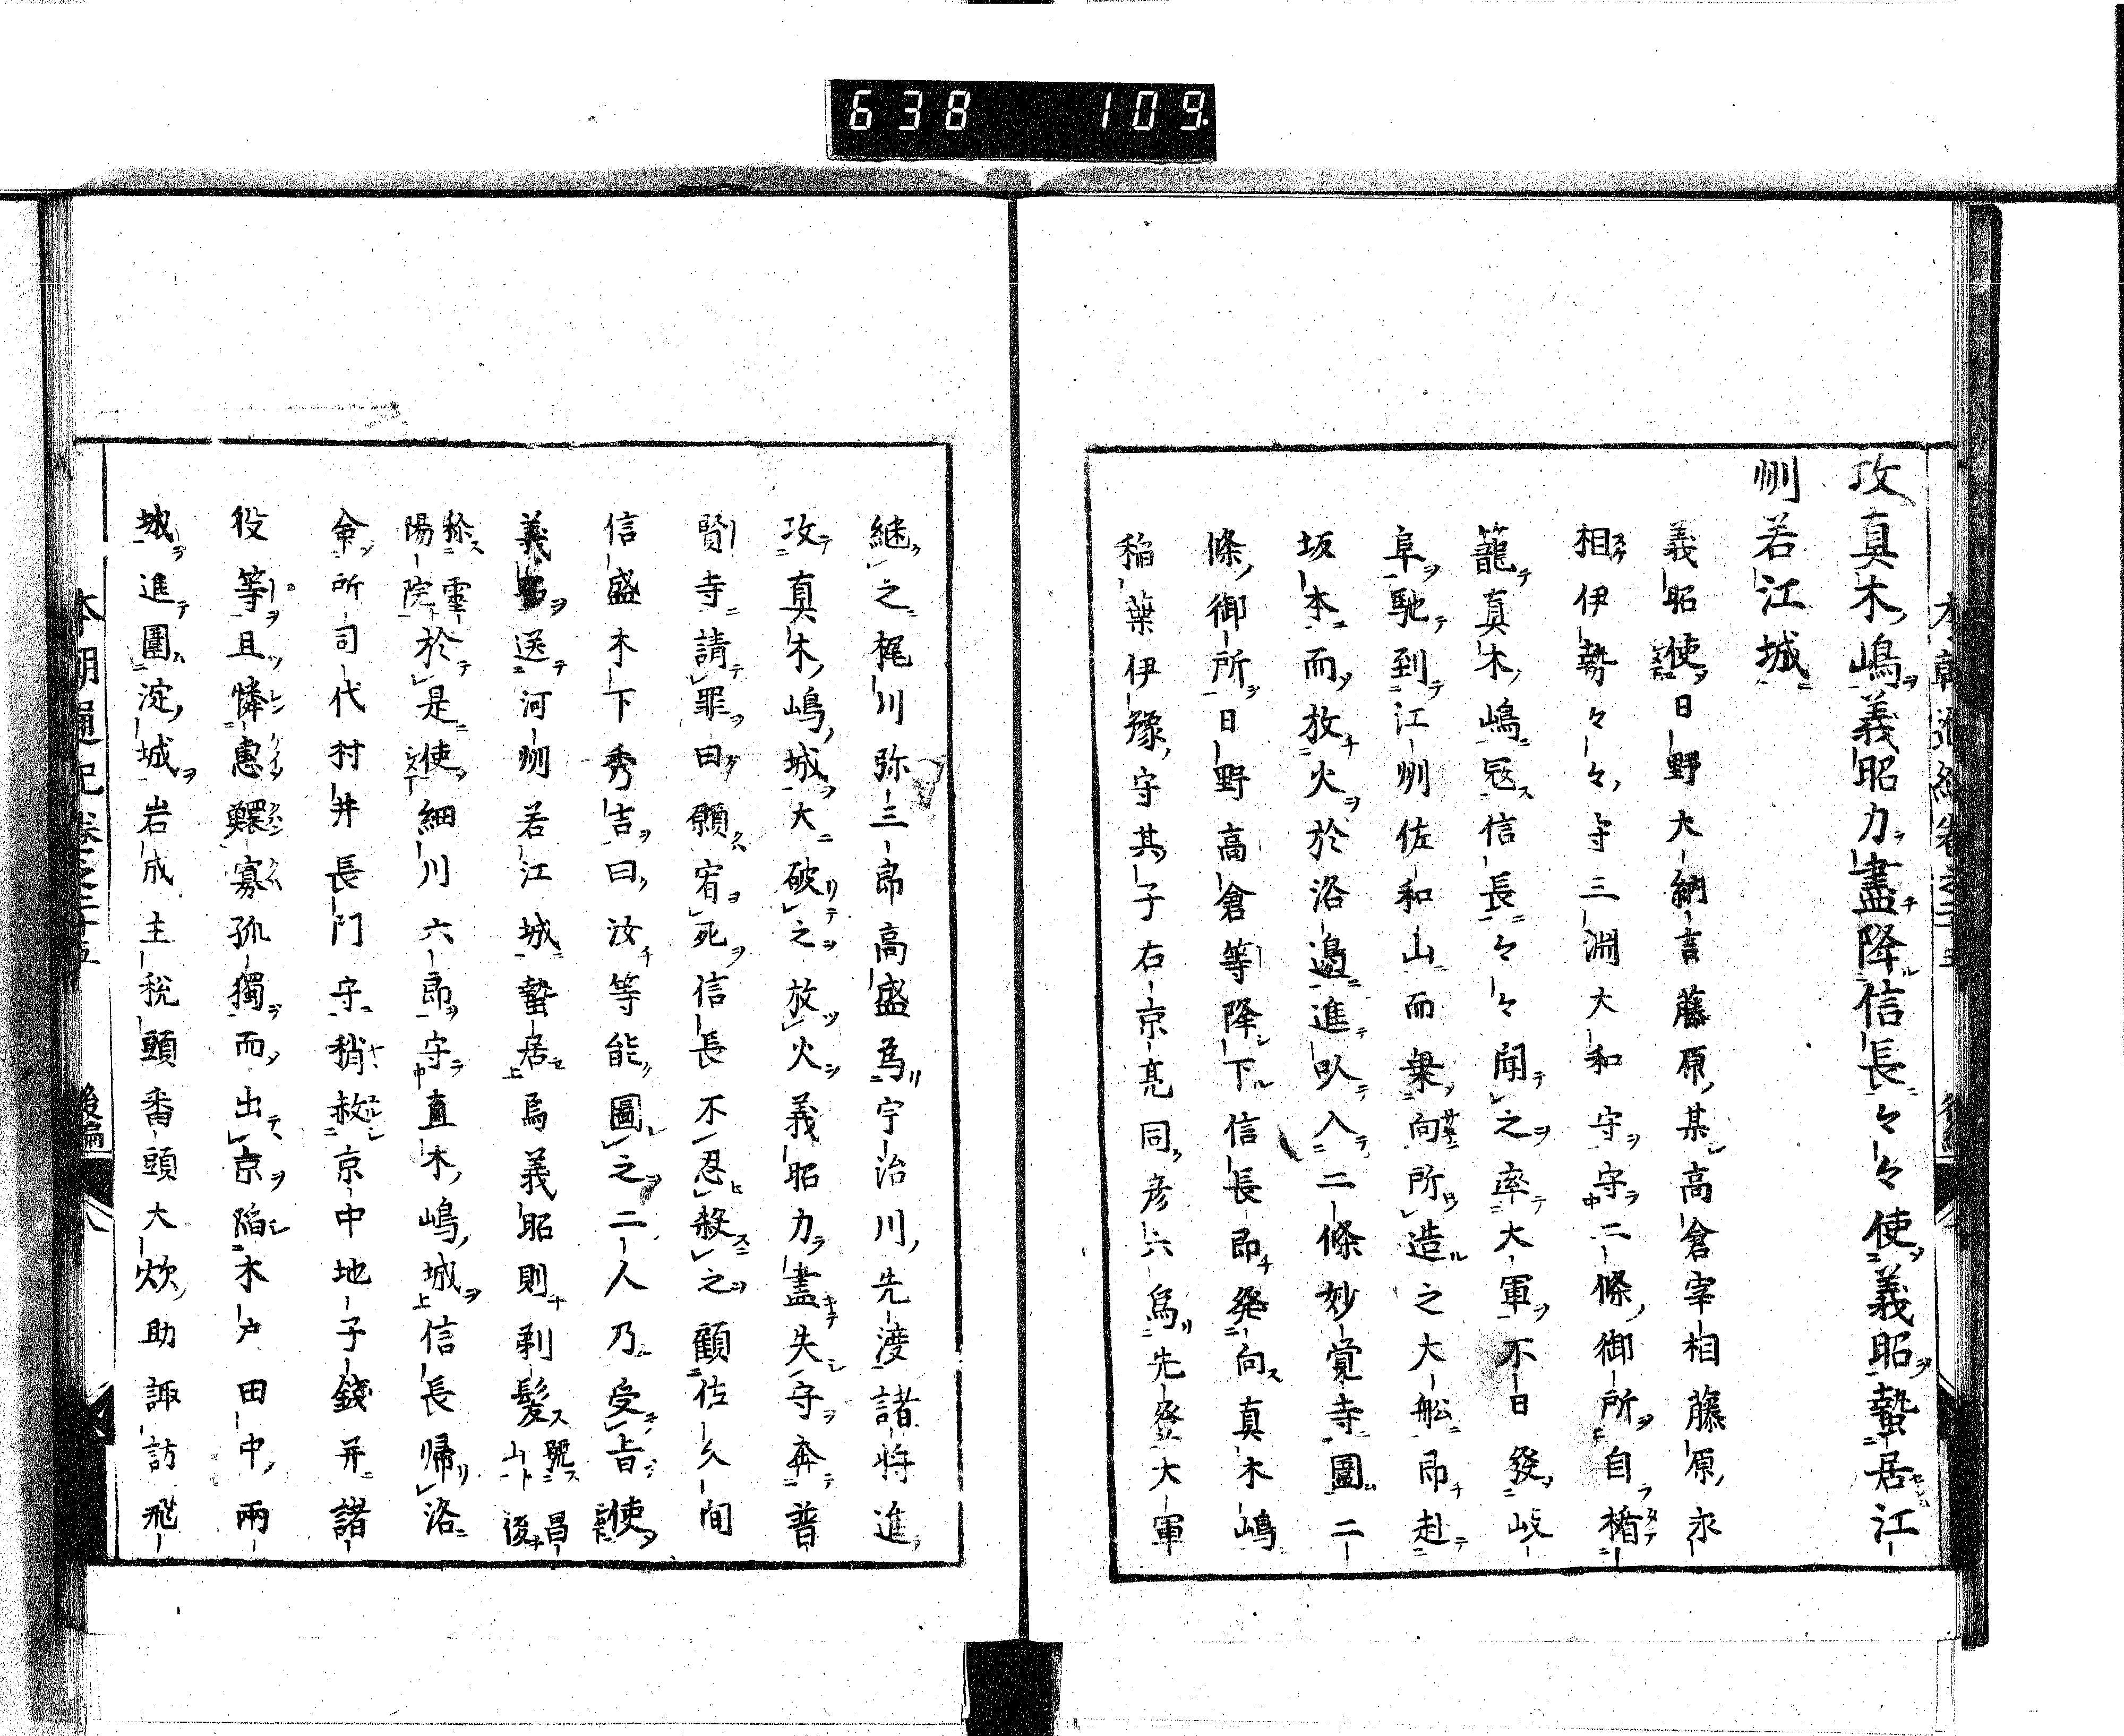 638 109
攻真木嶋義昭力盡降信長々々使義昭蟄居江
州若江城
義昭使日野大納言藤原某高倉宰相藤原永
相伊勢々々守三淵大和守守二條御所自楯
籠真木嶋寇信長々々聞之率大軍不日發岐
阜馳到江州佐和山而乗向所造之大舩即赴
坂本而放火於洛邉進入二條妙覚寺圍二
條御所日野高倉等降下信長即発向真木嶋
稲葉伊豫守其子右京亮同彦六為先登大軍
継之梶川弥三郎高盛為宇治川先渡諸将進
攻真木嶋城大破之放火義昭力盡失守奔普
賢寺請罪曰願宥死信長不忍殺之顧佐久間
信盛木下秀吉曰汝等能圖之二人乃受旨使
義昭送河州若江城蟄居焉義昭則剃髪號昌
山後
称霊
陽院於是使細川六郎守真木嶋城信長帰洛
命所司代村井長門守稍赦京中地子錢并諸
役等且憐惠鰥寡孤獨而出京陥木戸田中兩
城進圍淀城岩成主税頭番頭大炊助諏訪飛
本朝通紀巻之二十五 後編 八